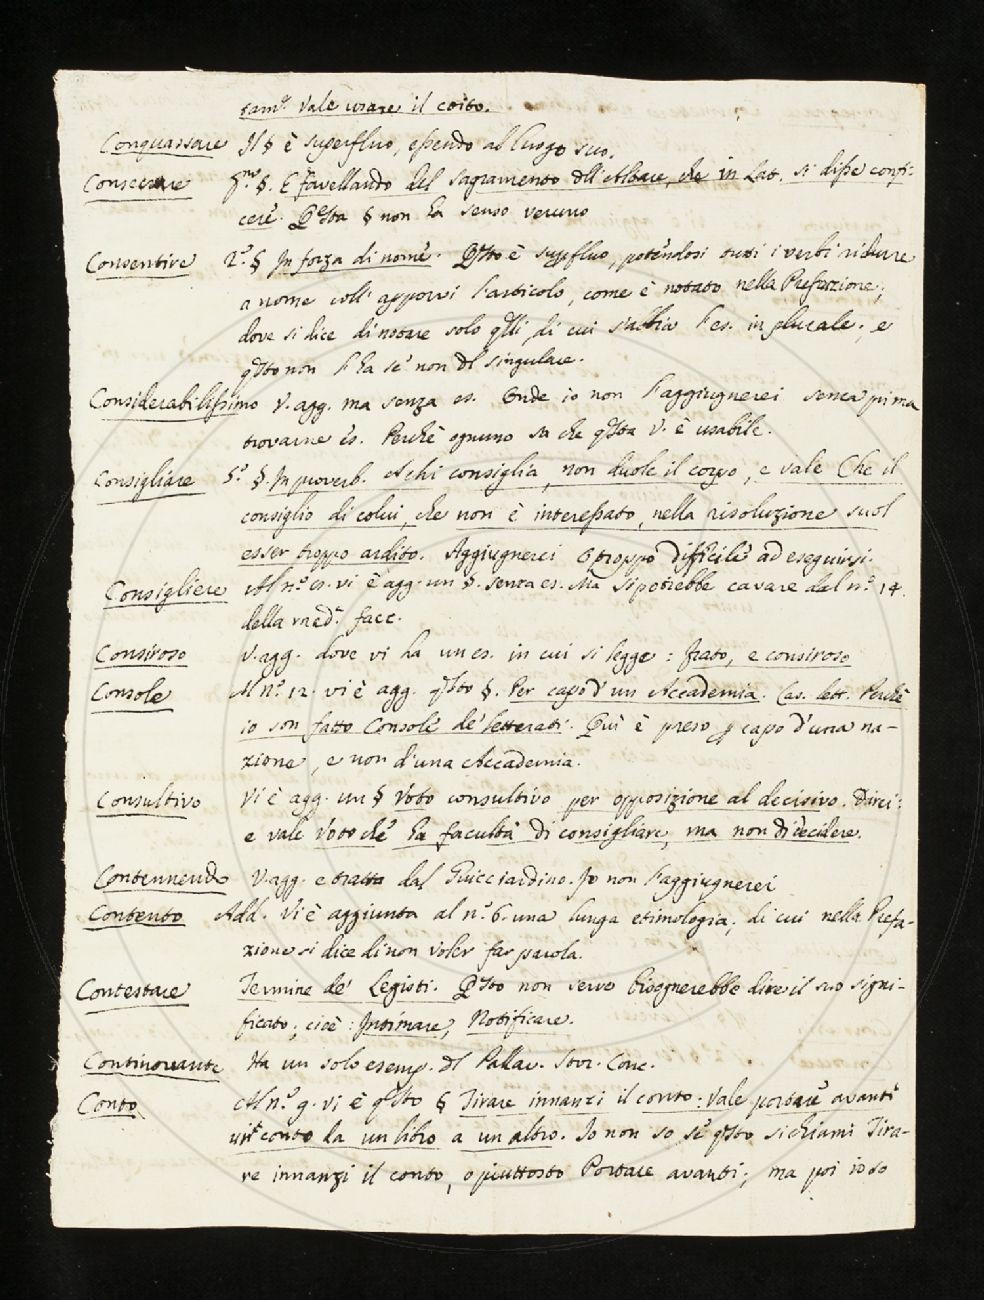 tamte. Vale usare il coito.
Conquassare Il § è superfluo, essendo al luogo suo.
Consecrare §. E favellando del sagramento dll'Altare, che in Lat. si disse confi:
cere. Qsta § non ha senso veruno
Consentire 2.° § In forza di nome. Qsto è suppfluo, potendosi tutti i verbi ridurre
a nome coll' apporvi l'articolo, come è notato nella Prefazione;
dove si dice di notare solo qlli, di cui s'abbia l'es. in plurale; e
qsto non l'ha se non dl singulare.
Considerabilissimo V. agg. ma senza es. Onde io non l'aggiugnerei senza prima
trovarne es. Perchè ognuno sa che qsta V. è usabile.
Consigliare 5.° §. In proverb. A chi consiglia, non duole il corpo, e vale Che il
consiglio di colui, che non è interessato, nella risoluzione suol
esser troppo ardito. Aggiugnerei o troppo difficile ad eseguirsi.
Consigliere Al n.° es. vi è agg. un §. senza es. Ma si potrebbe cavare dal n.° 14.
della med.a facc.
Consiroso V. agg. dove vi ha un es. in cui si legge: Irato, e consiroso
Console Al n.° 12. vi è agg. qsto §. Per capo d'un Accademia. Cas. lett. Perchè
io son fatto Consolo de' letterati. Quì è preso p capo d'una na-
zione, e non d'una Accademia.
Consultivo Vi è agg. un § Voto consultivo per opposizione al decisivo. Dici:
e vale Voto che ha facultà di consigliare, ma non di decidere.
Contennendo V. agg. e tratta dal Guicciardino. Io non l'aggiugnerei
Contento Add. Vi è aggiunta al n.° 6. una lunga etimologia, di cui nella Prefa-
zione si dice di non voler far parola.
Contestare Termine de' Legisti. Qsto non serve bisognerebbe dire il suo signi-
ficato, cioè: Intimare, Notificare.
Continovante Ha un solo esemp. dl Pallav. Stor. Conc.
Conto Al n.° 9. vi è qsto § Tirare innanzi il conto: Vale portare avanti
un conto da un libro a un altro. Io non so se qsto si chiami Tira-
re innanzi il conto, o piuttosto Portare avanti; ma poi io so